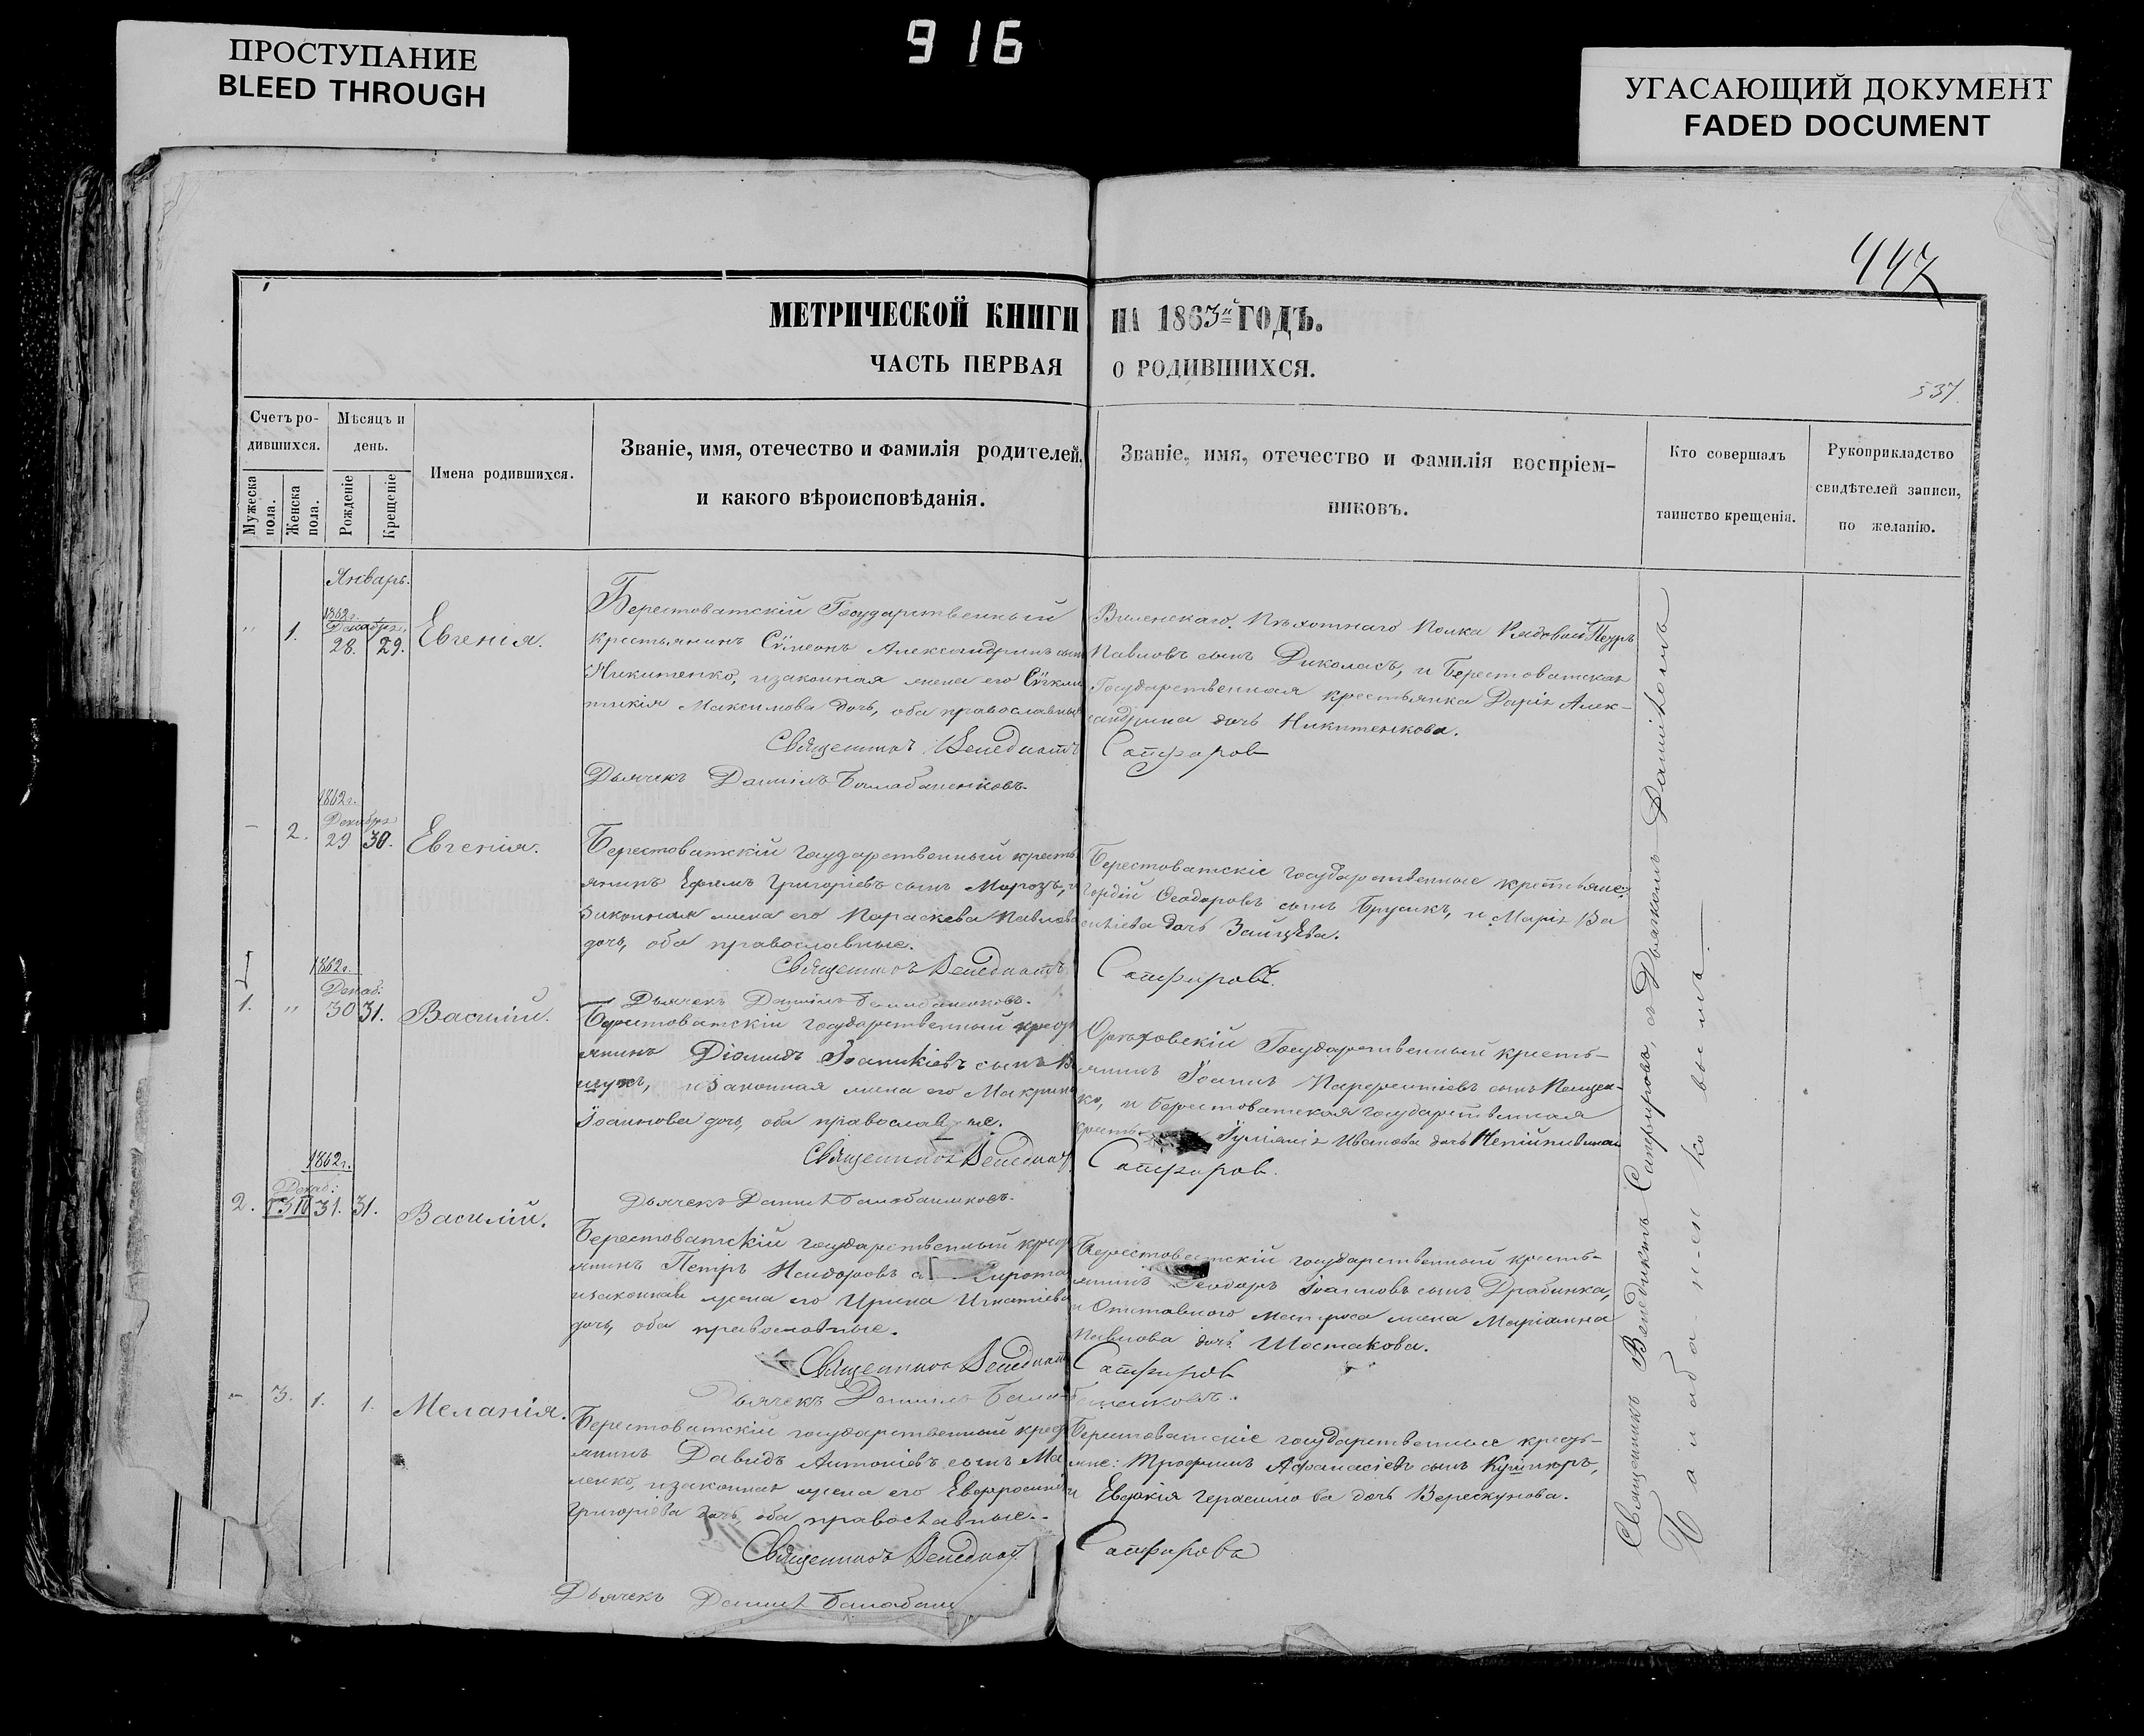 ПРОСТУПАНИЕ
BLEED THROUGH
916
УГАСАЮЩИЙ ДОКУМЕНТ
FADED DOCUMENT
447
МЕТРИЧЕСКОЙ КНИГИ НА 1863й ГОДЪ.
ЧАСТЬ ПЕРВАЯ О РОДИВШИХСЯ.
537.
Счетъ ро-
дившихся.
Мужеска
пола.
Женска
пола.
Мѣсяцъ и
день.
Рожденіе
Крещеніе
Имена родившихся.
Званіе, имя, отечество и фамилія родителей,
и какого вѣроисповѣданія.
Званіе, имя, отечество и фамилія воспріем-
никовъ.
Кто совершалъ
таинство крещенія.
Рукоприкладство
свидѣтелей записи,
по желанію.
Январь.
" 1. 1862г. Декабря. 28. 29. Евгенія.
Берестоватскій Государственный
крестьянинъ Сѵмеонъ Александринъ сынъ
Никитенко, и законная жена его Сѵнкли
тикія Максимова дочь, оба православные
Священникъ Венедиктъ
Дьячекъ Даніилъ Балабаненковъ.
Виленскаго Пѣхотнаго Полка Рядовый Петръ
Павловъ сынъ Диколасъ, и Берестоватская
Государственная крестьянка Дарія Алек-
сандрина дочь Никитенкова.
Сапфиров
- 2. 1862г. Декабря 29 30. Евгенія.
Берестоватскій государственный кресть
янинъ Ефимъ Григоріевъ сынъ Морозъ, и
законная жена его Параскева Павлова
дочь, оба православные.
Священникъ Венедиктъ
Дьячекъ Даніилъ Балабаненковъ.
Берестоватскіе государственные крестьяне:
Гордій Ѳеодоровъ сынъ Брусикъ, и Марія Ва
силіева дочь Зайцева.
Сапфировъ.
1. " 1862г. Декаб: 30 31. Василій.
Берестоватскій государственный крест
янинъ Діомидъ Іоаникіевъ сынъ
и законная жена его Макрина
Іоаннова дочь, оба православные.
Священникъ Венедикт
Дьячекъ Даніилъ Балабаненковъ.
Орѣховскій Государственный кресть-
янинъ Іоаннъ Парфентіевъ сынъ
ко, и Берестоватская государственная
кресть Іуліанія Иванова дочь
Сапфиров.
2. 1862г. Декаб: 31. 31. Василій.
Берестоватскій государственный крест
янинъ Петръ Исидоровъ Сирота,
и законная жена его Ирина Игнатіева
дочь, оба православные.
Священникъ Венедикт
Дьячекъ Даніилъ Балабаненковъ.
Берестоватскій государственный кресть-
янинъ Ѳеодоръ Іоанновъ сынъ Драбинка,
и Отставного Матроса жена Маріанна
Павлова дочь Шостакова.
Сапфиров
- 3. 1. 1. Меланія.
Берестоватскій государственный крест
янинъ Давидъ Антоніевъ сынъ Ма
ленко, и законная жена его Евфросинія
Григоріева дочь, оба православные.
Священникъ Венедикт
Дьячекъ Даніилъ Балабан
Берестоватскіе государственные кресть-
яне: Трофимъ Афанасіевъ сынъ Кушниръ,
и Евдокія Герасимова дочь Верескунова.
Сапфировъ
Священникъ Венедиктъ Сапфировъ, съ Дьячкомъ Даніиломъ
Балабаненковымъ